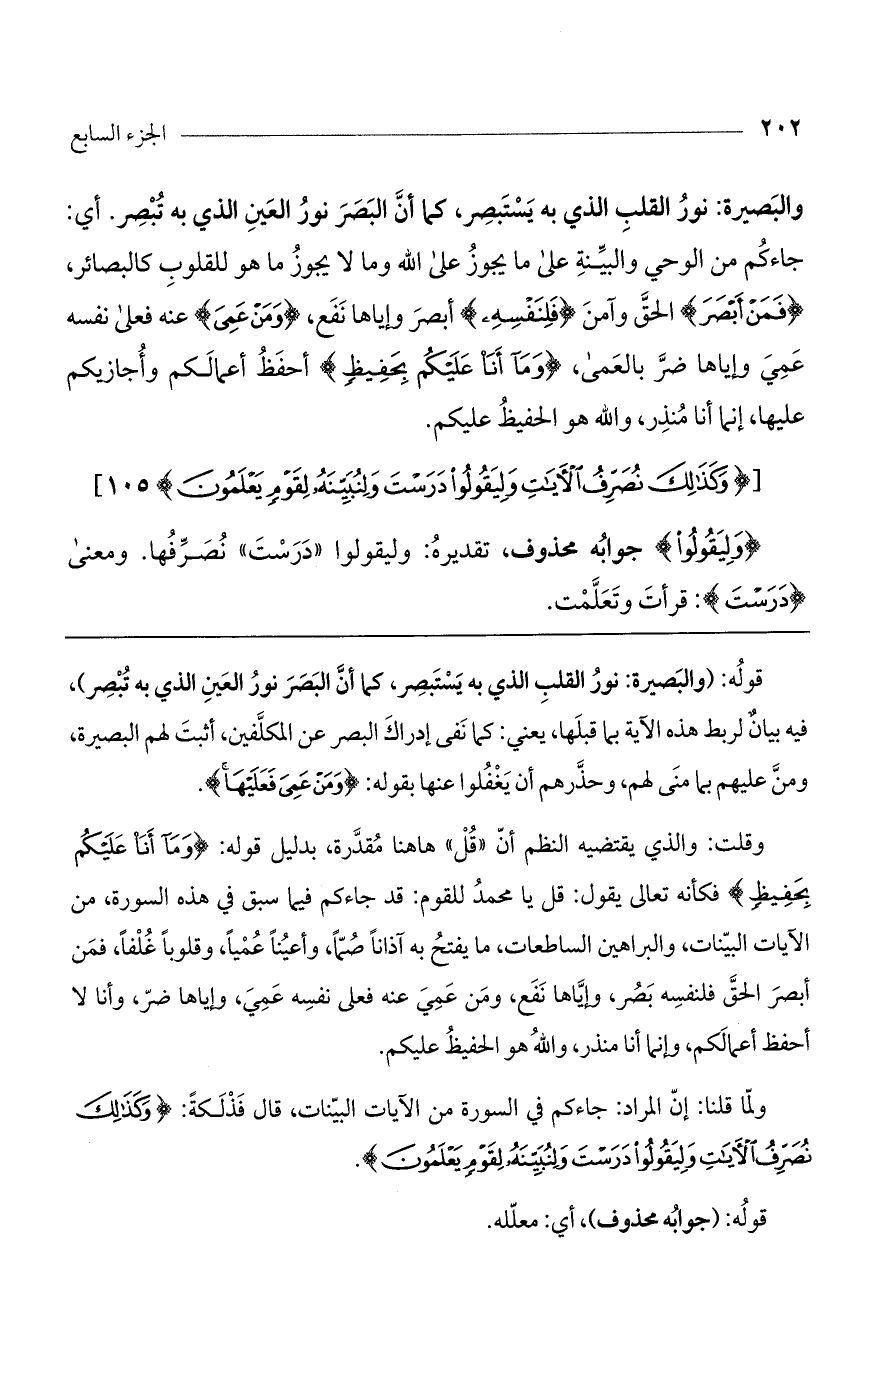 ٢٠٢ الجزء السابع
والبَصيرة: نورُ القلبِ الذي به يَسْتَبصِر، كما أنَّ البَصَرَ نورُ العَينِ الذي به تُبْصِر. أي:
جاءكُم من الوحي والبيِّنةِ علىٰ ما يجوزُ علىٰ الله وما لا يجوزُ ما هو للقلوبِ كالبصائر،
﴿فَمَنْ أَبْصَرَ﴾ الحقَّ وآمنَ ﴿فَلِنَفْسِهِۦ﴾ أبصرَ وإياها نَفَع، ﴿وَمَنْ عَمِىَ﴾ عنه فعلىٰ نفسه
عَمِيَ وإياها ضرَّ بالعَمىٰ، ﴿وَمَآ أَنَا۠ عَلَيْكُم بِحَفِيظٍ﴾ أحفَظُ أعمالَـكم وأُجازيكم
عليها، إنما أنا مُنذِر، والله هو الحفيظُ عليكم.
[﴿وَكَذَٰلِكَ نُصَرِّفُ ٱلْأَيَٰتِ وَلِيَقُولُوا۟ دَرَسْتَ وَلِنُبَيِّنَهُۥ لِقَوْمٍ يَعْلَمُونَ﴾ ١٠٥]
﴿وَلِيَقُولُوا۟﴾ جوابُه محذوف، تقديرهُ: وليقولوا «دَرَسْتَ» نُصَـرِّفُها. ومعنىٰ
﴿دَرَسْتَ﴾: قرأتَ وتَعَلَّمْت.
قولُه: (والبَصيرة: نورُ القلبِ الذي به يَسْتَبصِر، كما أنَّ البَصَرَ نورُ العَينِ الذي به تُبْصِر)،
فيه بيانٌ لربط هذه الآية بما قبلَها، يعني: كما نَفى إدراكَ البصر عن المكلَّفين، أثبتَ لهم البصيرة،
ومنَّ عليهم بما منَى لهم، وحذَّرهم أن يَغْفُلوا عنها بقوله: ﴿وَمَنْ عَمِىَ فَعَلَيْهَا﴾.
وقلت: والذي يقتضيه النظم أنّ «قُلْ» هاهنا مُقدَّرة، بدليل قوله: ﴿وَمَآ أَنَا۠ عَلَيْكُم
بِحَفِيظٍ﴾ فكأنه تعالى يقول: قل يا محمدُ للقوم: قد جاءكم فيما سبق في هذه السورة، من
الآيات البيّنات، والبراهين الساطعات، ما يفتحُ به آذاناً صُمّاً، وأعيُناً عُمْياً، وقلوباً غُلْفاً، فمَن
أبصرَ الحقَّ فلنفسِه بَصُر، وإيَّاها نَفَع، ومَن عَمِيَ عنه فعلى نفسِه عَمِيَ، وإياها ضرّ، وأنا لا
أحفظ أعمالَكم، وإنما أنا منذر، واللهُ هو الحفيظُ عليكم.
ولمّا قلنا: إنّ المراد: جاءكم في السورة من الآيات البيّنات، قال فَذْلَـكةً: ﴿وَكَذَٰلِكَ
نُصَرِّفُ ٱلْأَيَٰتِ وَلِيَقُولُوا۟ دَرَسْتَ وَلِنُبَيِّنَهُۥ لِقَوْمٍ يَعْلَمُونَ﴾.
قولُه: (جوابُه محذوف)، أي: معلّله.